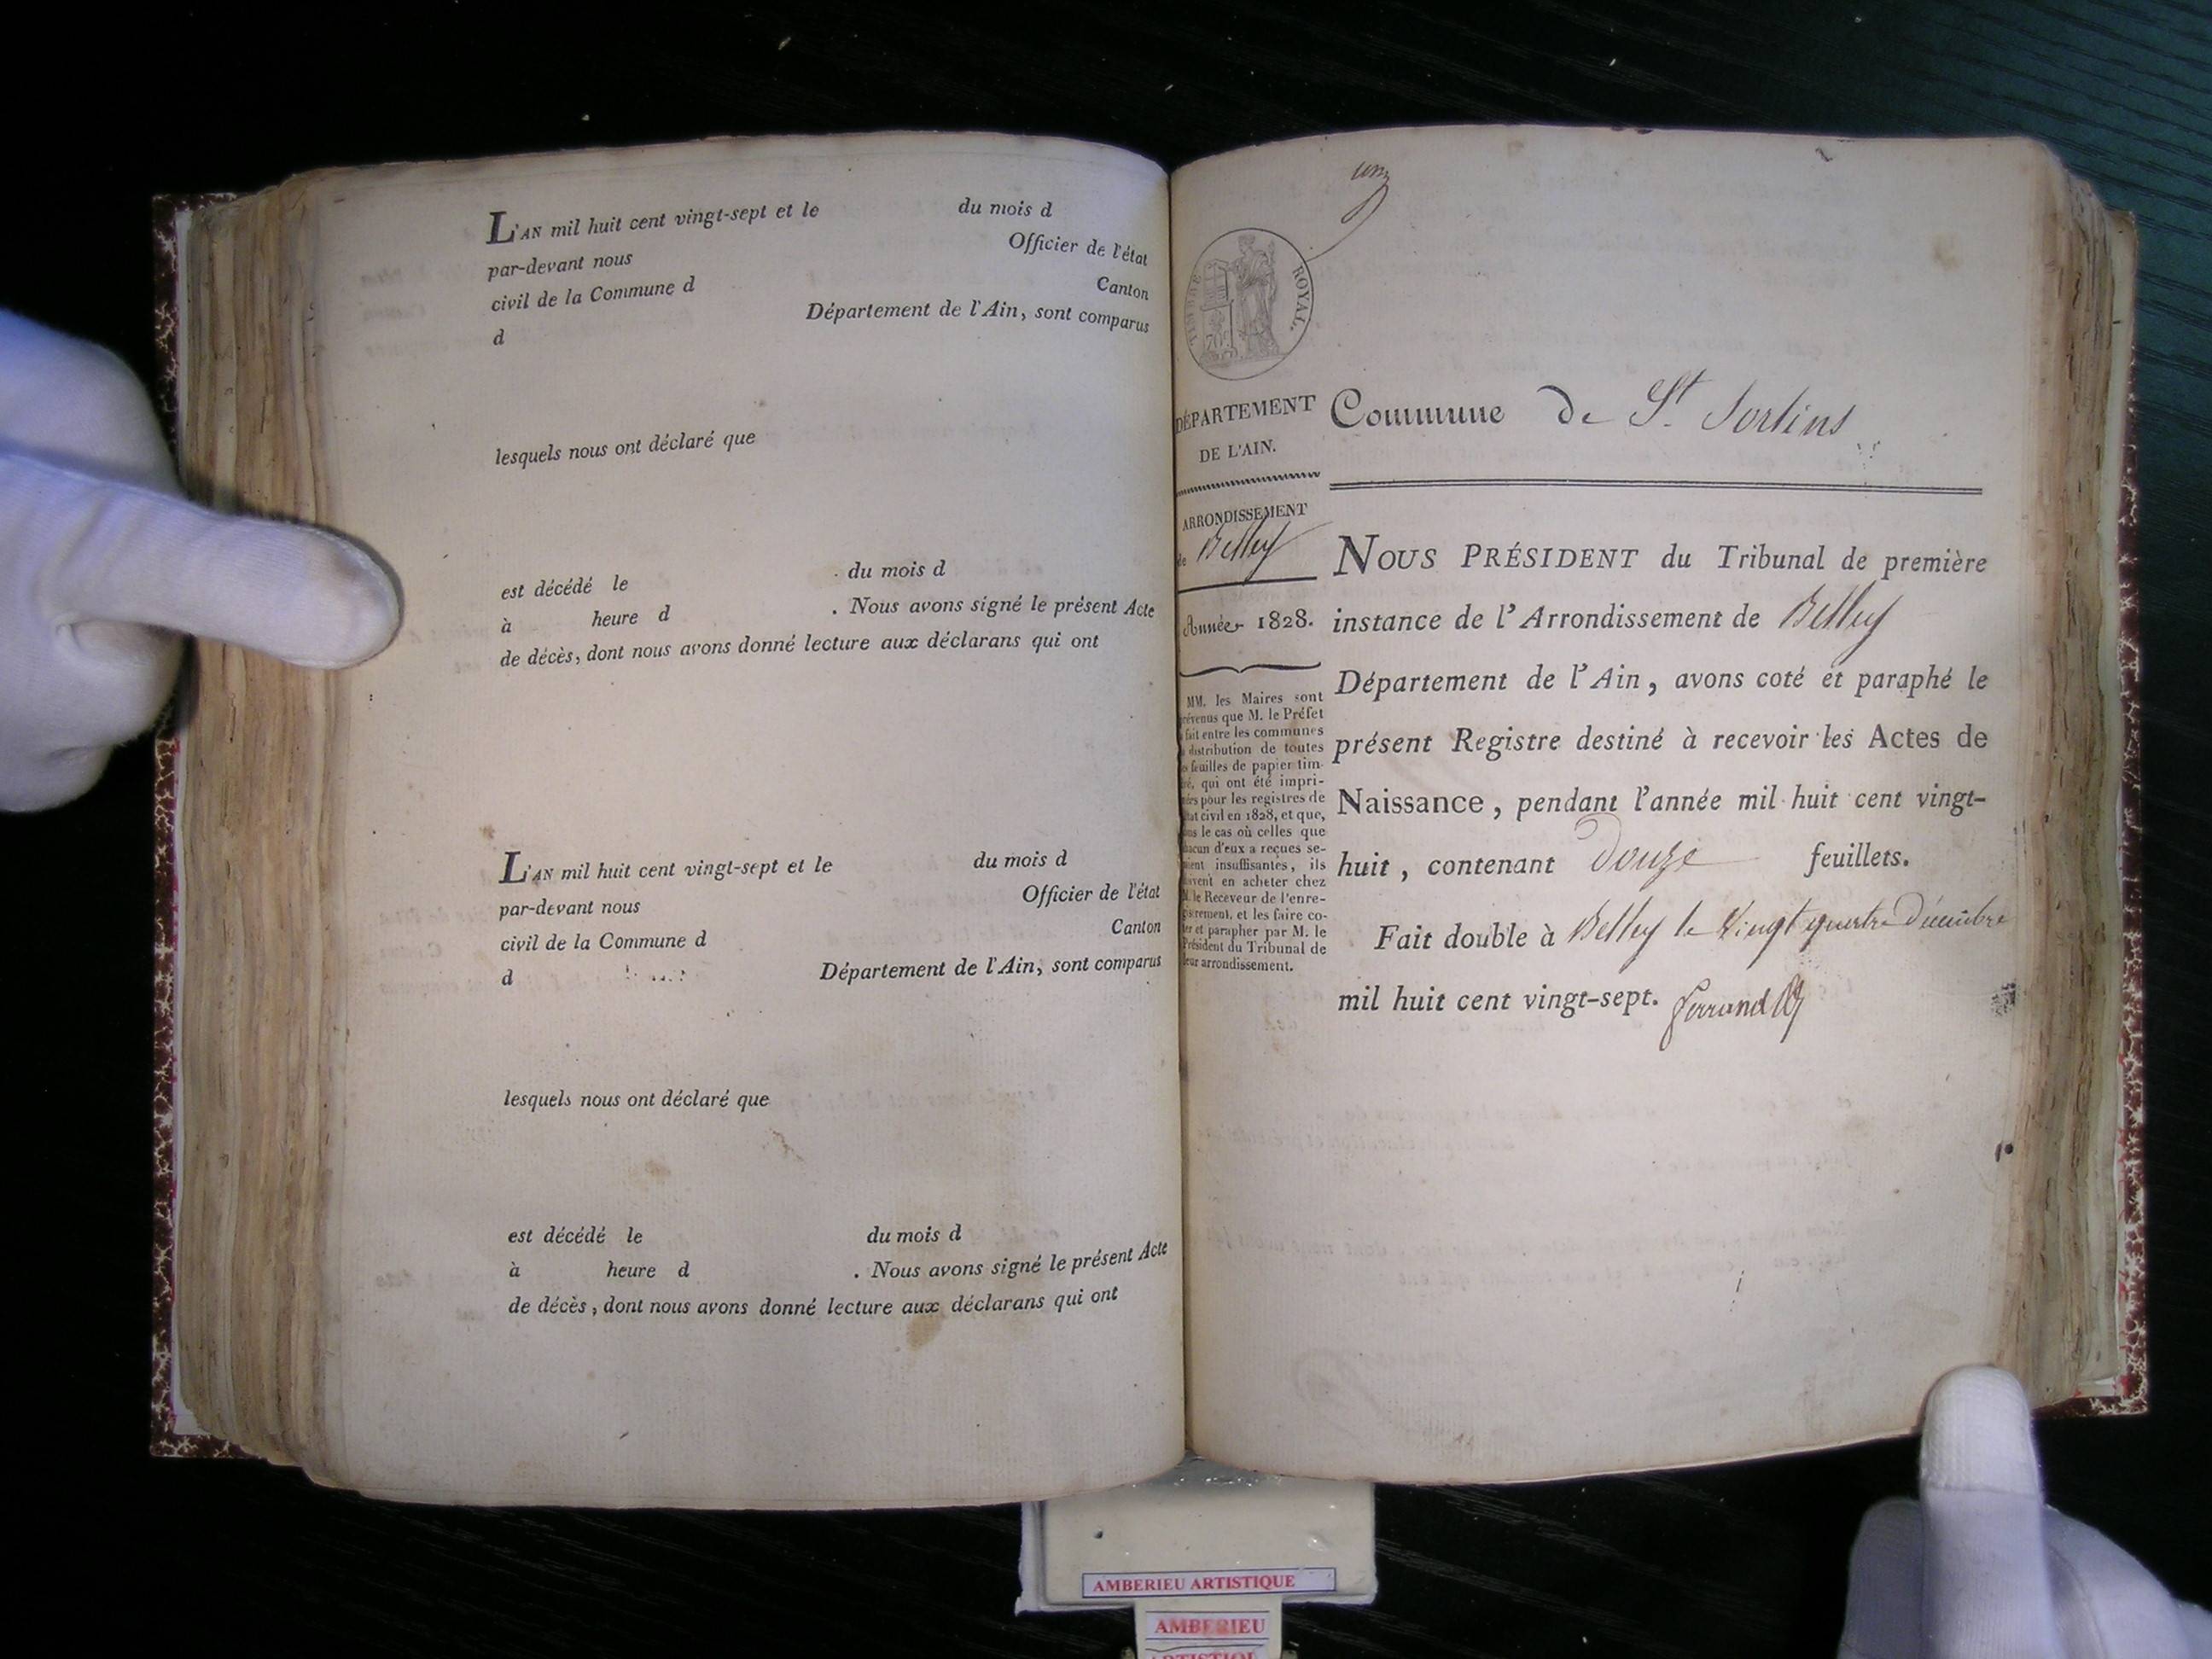 L'AN mil huit cent vingt-sept et le du mois d
par-devant nous Officier de l'état
civil de la Commune d Canton
d Département de l'Ain, sont comparus
lesquels nous ont déclaré que
est décédé le du mois d
à heure d . Nous avons signé le présent Acte
de décès, dont nous avons donné lecture aux déclarans qui ont
L'AN mil huit cent vingt-sept et le du mois d
par-devant nous Officier de l'état
civil de la Commune d Canton
d Département de l'Ain, sont comparus
lesquels nous ont déclaré que
est décédé le du mois d
à heure d . Nous avons signé le présent Acte
de décès, dont nous avons donné lecture aux déclarans qui ont
TIMBRE ROYAL.
DÉPARTEMENT
DE L'AIN.
ARRONDISSEMENT
de Belley
Année 1828.
MM. les Maires sont
prévenus que M. le Préfet
fait entre les communes
distribution de toutes
feuilles de papier tim-
qui ont été impri-
pour les registres de
civil en 1828, et que,
le cas où celles que
d'eux a reçues se-
insuffisantes, ils
en acheter chez
le Receveur de l'enre-
et les faire co-
et parapher par M. le
Président du Tribunal de
leur arrondissement.
Commune de St Sorlins
NOUS PRÉSIDENT du Tribunal de première
instance de l'Arrondissement de Belley
Département de l'Ain, avons coté et paraphé le
présent Registre destiné à recevoir les Actes de
Naissance, pendant l'année mil huit cent vingt-
huit, contenant douze feuillets.
Fait double à Belley le Vingt quatre Décembre
mil huit cent vingt-sept. Ferrand
AMBERIEU ARTISTIQUE
AMBERIEU
ARTISTIQUE